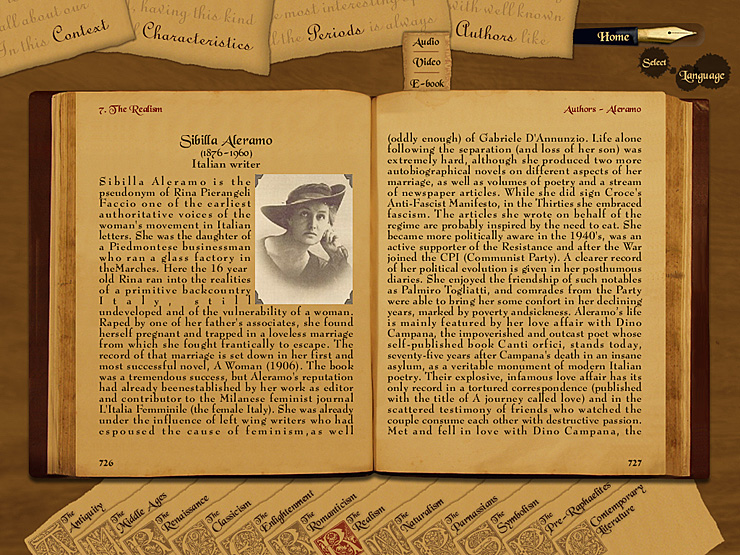 all about our
In this Context
having this kind
Characteristics
most interesting
the Periods is always
with well known
Authors like
Home
Select
Language
Audio
Video
E-book
7. The Realism
Sibilla Aleramo
(1876-1960)
Italian writer
Sibilla Aleramo is the
pseudonym of Rina Pierangeli
Faccio one of the earliest
authoritative voices of the
woman's movement in Italian
letters. She was the daughter of
a Piedmontese businessman
who ran a glass factory in
theMarches. Here the 16 year
old Rina ran into the realities
of a primitive backcountry
Italy, still
undeveloped and of the vulnerability of a woman.
Raped by one of her father's associates, she found
herself pregnant and trapped in a loveless marriage
from which she fought frantically to escape. The
record of that marriage is set down in her first and
most successful novel, A Woman (1906). The book
was a tremendous success, but Aleramo's reputation
had already beenestablished by her work as editor
and contributor to the Milanese feminist journal
L'Italia Femminile (the female Italy). She was already
under the influence of left wing writers who had
espoused the cause of feminism,as well
726
Authors - Aleramo
(oddly enough) of Gabriele D'Annunzio. Life alone
following the separation (and loss of her son) was
extremely hard, although she produced two more
autobiographical novels on different aspects of her
marriage, as well as volumes of poetry and a stream
of newspaper articles. While she did sign Croce's
Anti-Fascist Manifesto, in the Thirties she embraced
fascism. The articles she wrote on behalf of the
regime are probably inspired by the need to eat. She
became more politically aware in the 1940's, was an
active supporter of the Resistance and after the War
joined the CPI (Communist Party). A clearer record
of her political evolution is given in her posthumous
diaries. She enjoyed the friendship of such notables
as Palmiro Togliatti, and comrades from the Party
were able to bring her some confort in her declining
years, marked by poverty andsickness. Aleramo's life
is mainly featured by her love affair with Dino
Campana, the impoverished and outcast poet whose
self-published book Canti orfici, stands today,
seventy-five years after Campana's death in an insane
asylum, as a veritable monument of modern Italian
poetry. Their explosive, infamous love affair has its
only record in a tortured correspondence (published
with the title of A journey called love) and in the
scattered testimony of friends who watched the
couple consume each other with destructive passion.
Met and fell in love with Dino Campana, the
727
The Antiquity
The Middle Ages
The Renaissance
The Classicism
The Enlightenment
The Romanticism
The Realism
The Naturalism
The Parnassians
The Symbolism
The Pre-Raphaelites
Contemporary
Literature